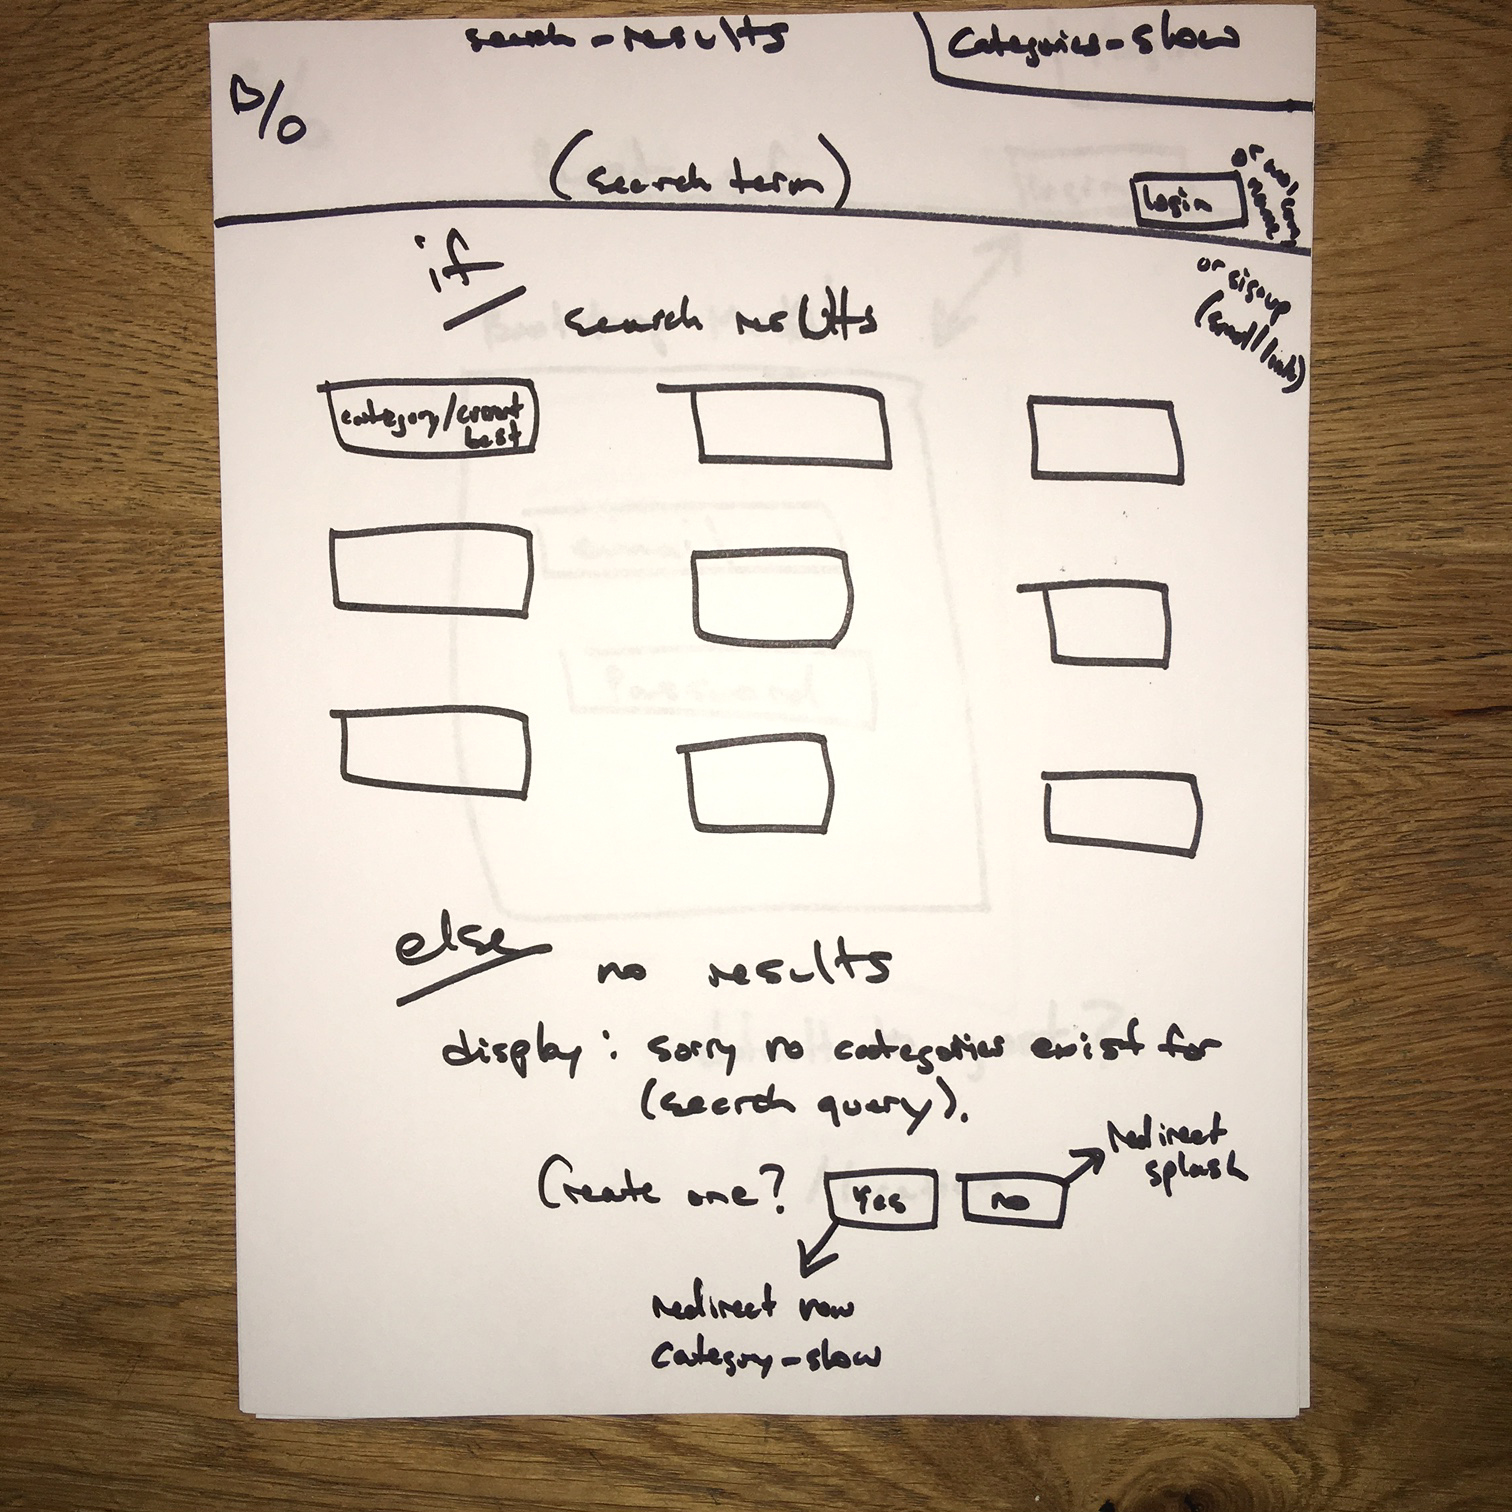 search-results
Categories-show
B/O
(search term)
login
or
or signup
(small link)
if
search results
category/current
best
else
no results
display: sorry no categories exist for
(search query).
Create one? Yes no
redirect
splash
redirect new
category-show